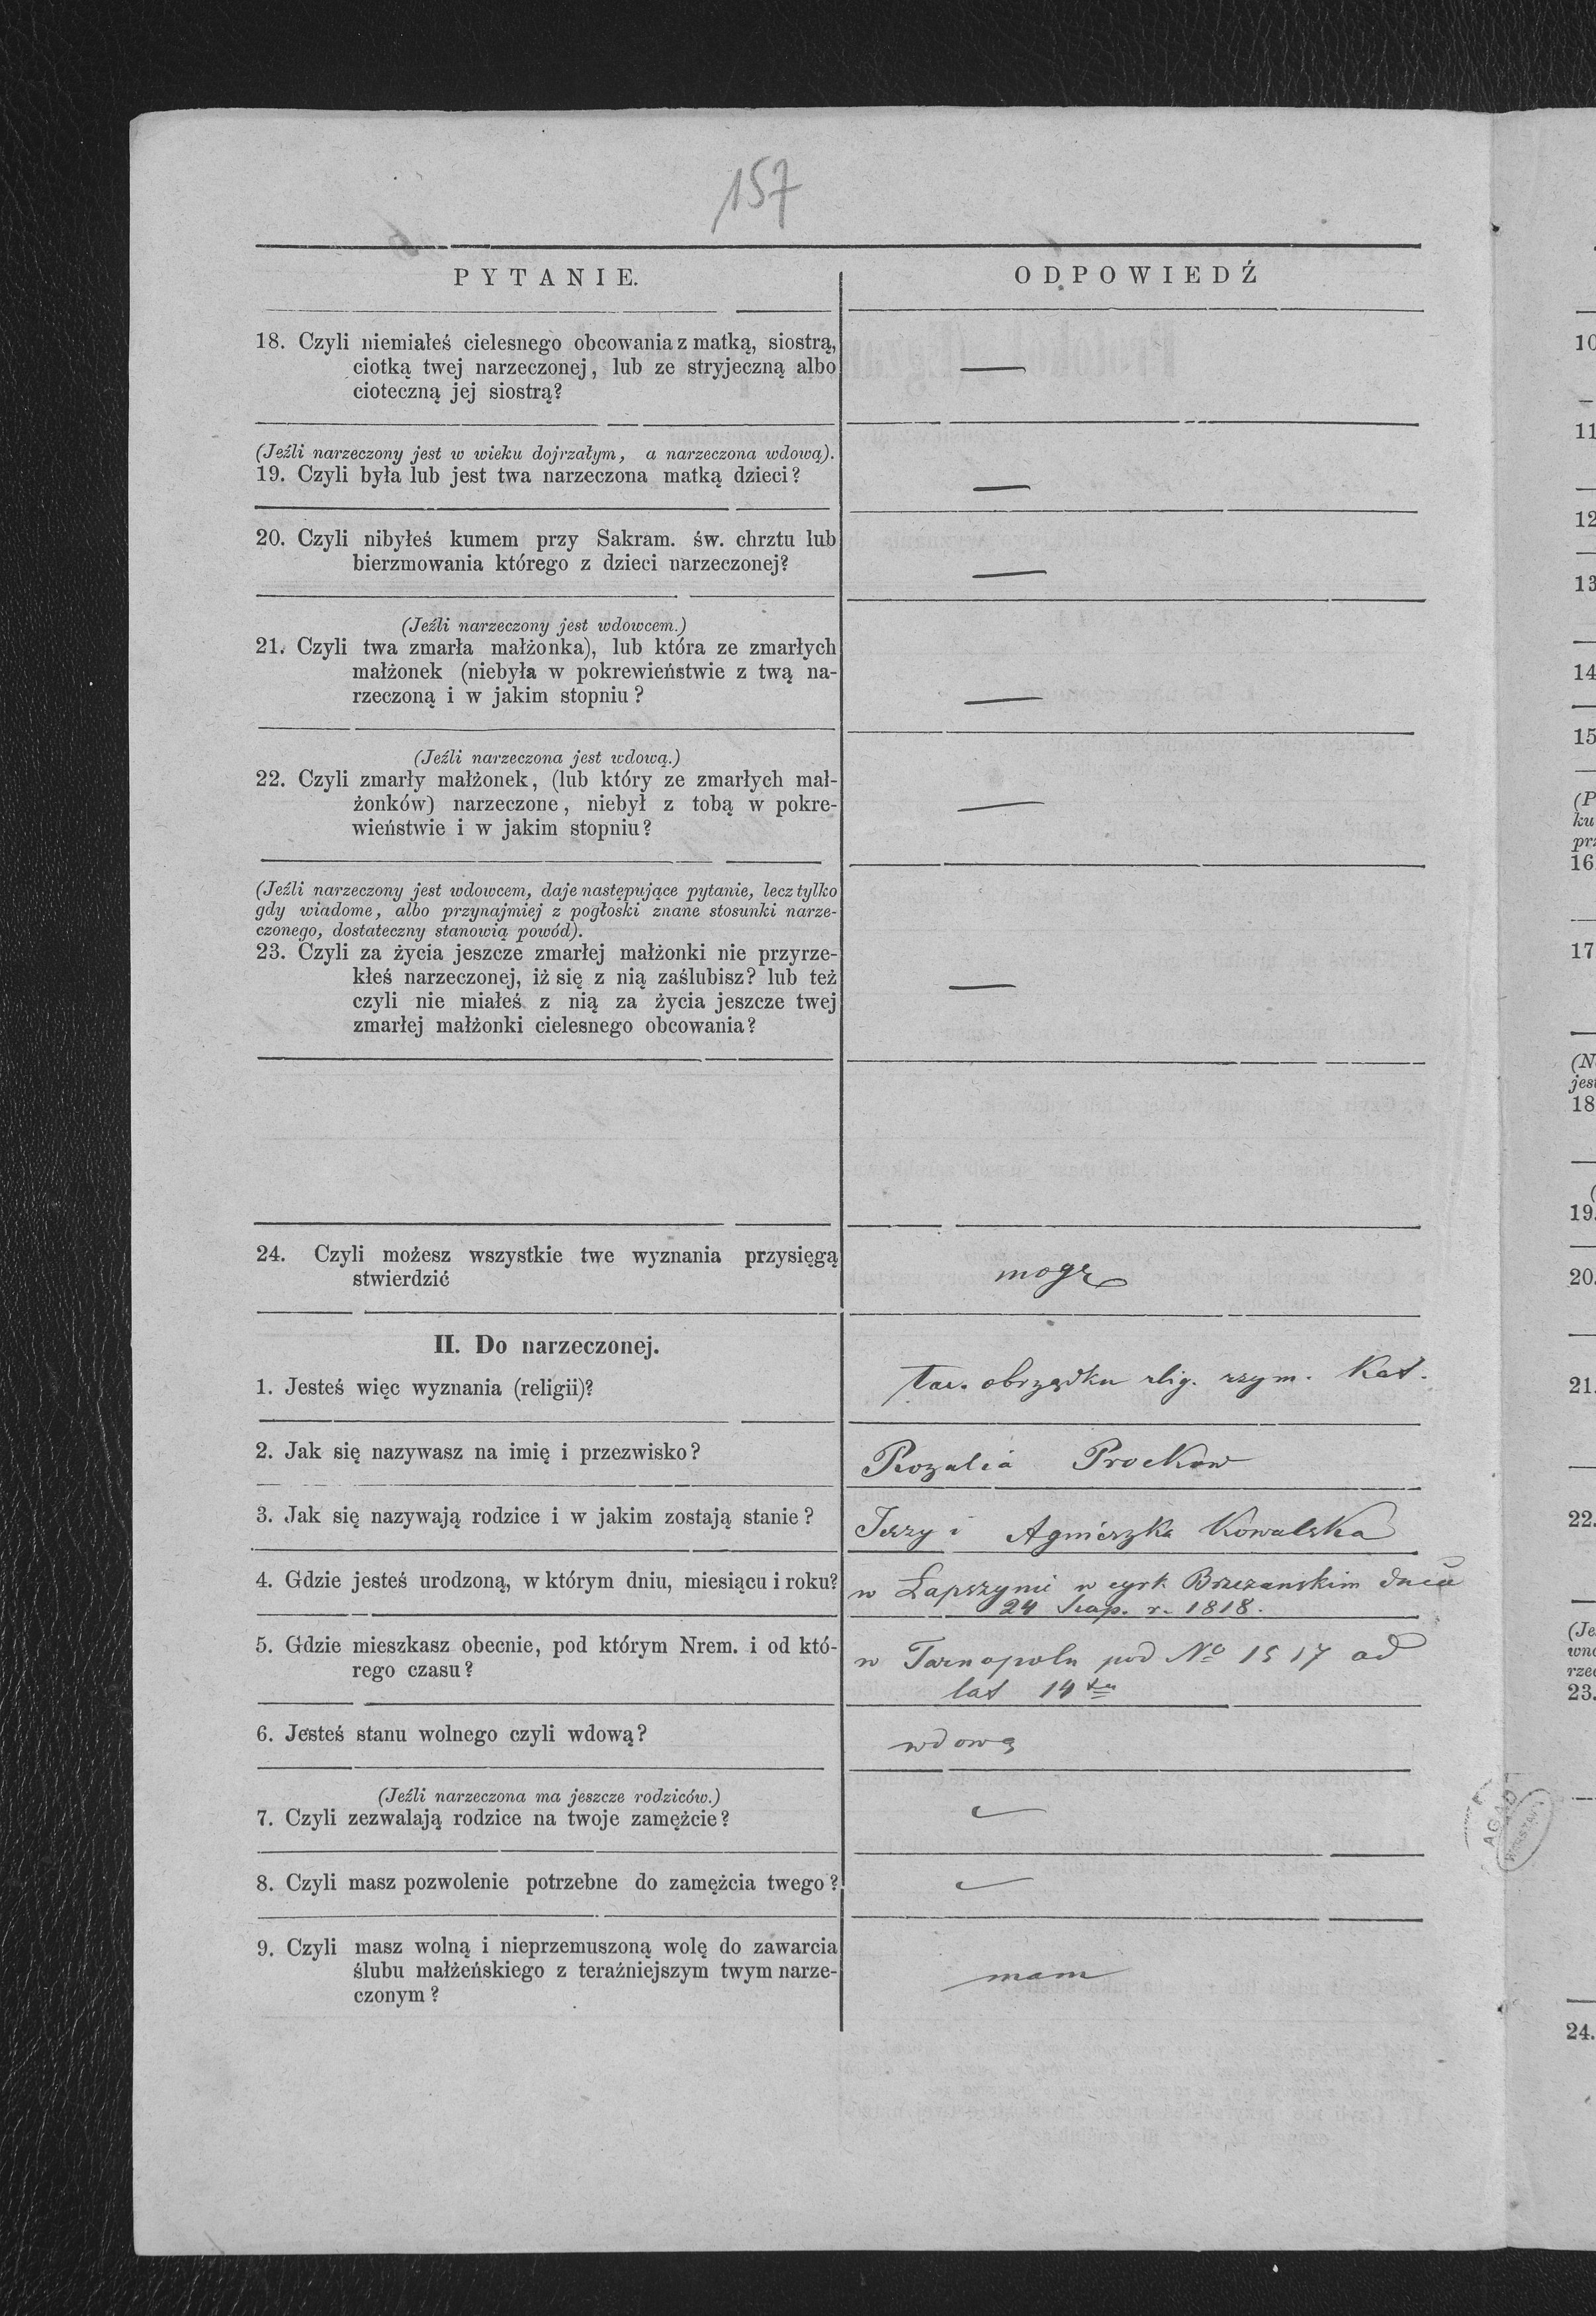 157
PYTANIE.
ODPOWIEDŹ
18. Czyli niemiałeś cielesnego obcowania z matką, siostrą,
ciotką twej narzeczonej, lub ze stryjeczną albo
cioteczną jej siostrą?
—
(Jeźli narzeczony jest w wieku dojrzałym, a narzeczona wdową).
19. Czyli była lub jest twa narzeczona matką dzieci?
—
20. Czyli nibyłeś kumem przy Sakram. św. chrztu lub
bierzmowania którego z dzieci narzeczonej?
—
(Jeźli narzeczony jest wdowcem.)
21. Czyli twa zmarła małżonka), lub która ze zmarłych
małżonek (niebyła w pokrewieństwie z twą na-
rzeczoną i w jakim stopniu?
—
(Jeźli narzeczona jest wdową.)
22. Czyli zmarły małżonek, (lub który ze zmarłych mał-
żonków) narzeczone, niebył z tobą w pokre-
wieństwie i w jakim stopniu?
—
(Jeźli narzeczony jest wdowcem, daje następujące pytanie, lecz tylko
gdy wiadome, albo przynajmiej z pogłoski znane stosunki narze-
czonego, dostateczny stanowią powód).
23. Czyli za życia jeszcze zmarłej małżonki nie przyrze-
kłeś narzeczonej, iż się z nią zaślubisz? lub też
czyli nie miałeś z nią za życia jeszcze twej
zmarłej małżonki cielesnego obcowania?
—
24. Czyli możesz wszystkie twe wyznania przysięgą
stwierdzić
mogę
II. Do narzeczonej.
1. Jesteś więc wyznania (religii)?
obrządku relig. rzym. Kat.
2. Jak się nazywasz na imię i przezwisko?
Rozalia Prockow
3. Jak się nazywają rodzice i w jakim zostają stanie?
Jerzy i Agnieszka Kowalska
4. Gdzie jesteś urodzoną, w którym dniu, miesiącu i roku?
w Łapszynie w cyrk. Brzezanskim dnia
24 r. 1818.
5. Gdzie mieszkasz obecnie, pod którym Nrem. i od któ-
rego czasu?
w Tarnopolu pod No 1517 od
lat 14tu
6. Jesteś stanu wolnego czyli wdową?
wdową
(Jeźli narzeczona ma jeszcze rodziców.)
7. Czyli zezwalają rodzice na twoje zamężcie?
8. Czyli masz pozwolenie potrzebne do zamężcia twego?
9. Czyli masz wolną i nieprzemuszoną wolę do zawarcia
ślubu małżeńskiego z teraźniejszym twym narze-
czonym?
mam
AGAD
10
11
12
13
14
15
(P
ku
prz
16
17
(N
jest
18
(
19.
20.
21.
22.
(Je
wno
rzec
23.
24.